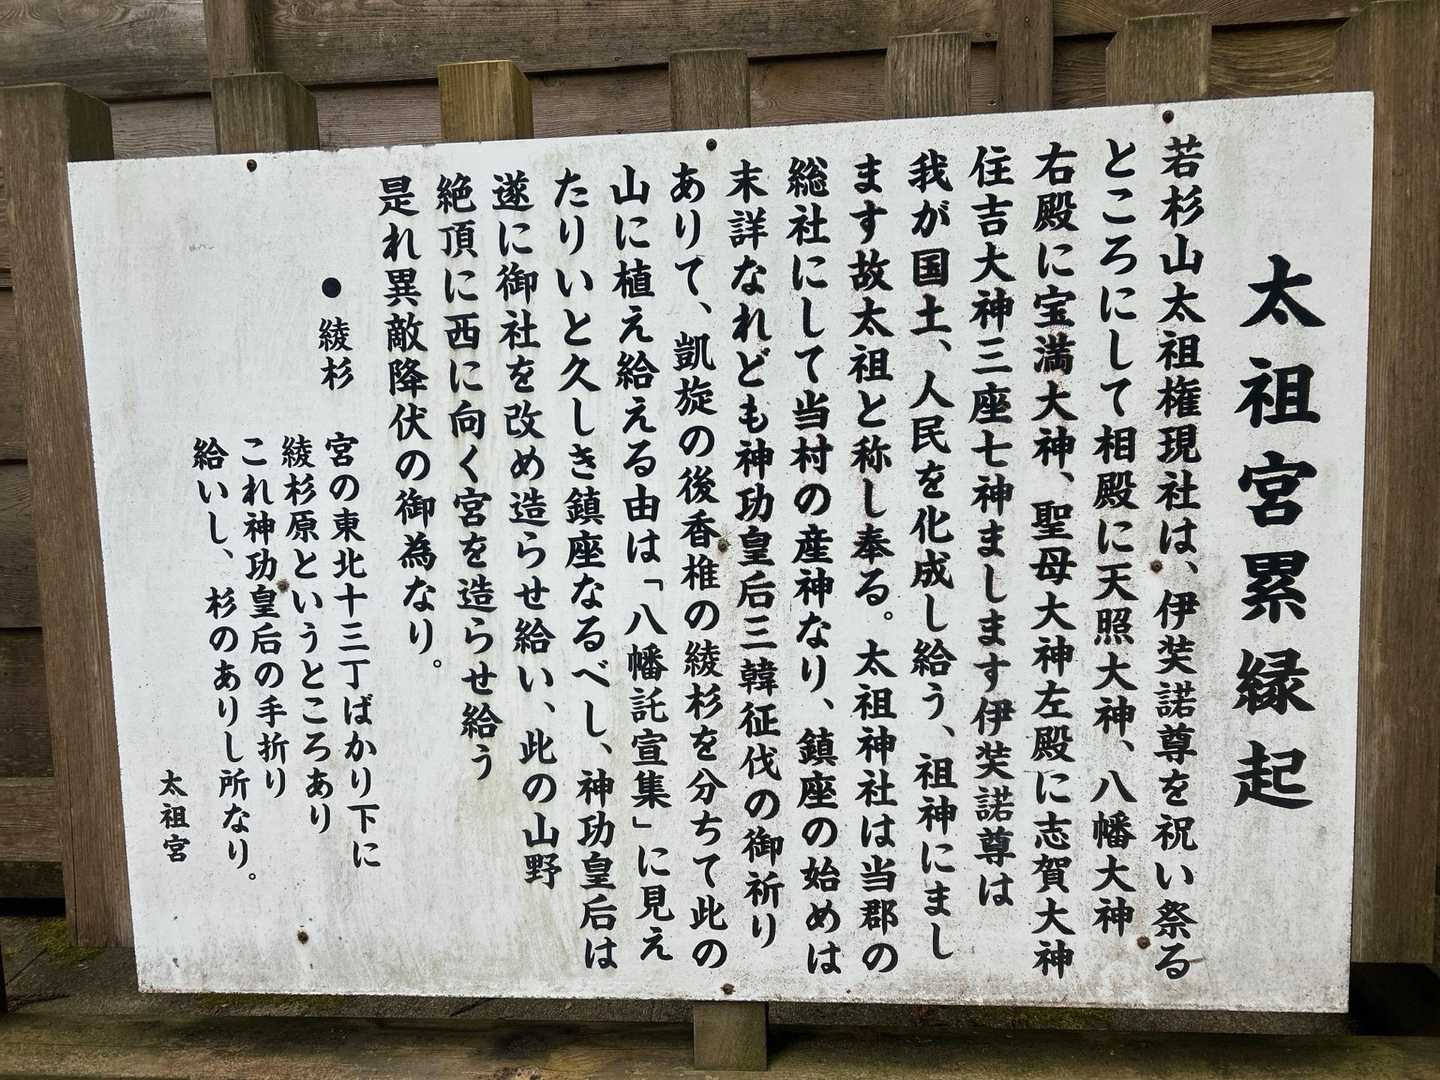 太祖宮累縁起
若杉山太祖権現社は、伊弉諾尊を祝い祭る
ところにして相殿に天照大神、八幡大神
右殿に宝満大神、聖母大神左殿に志賀大神
住吉大神三座七神まします伊弉諾尊は
我が国土、人民を化成し給う、祖神にまし
ます故太祖と称し奉る。太祖神社は当郡の
総社にして当村の産神なり、鎮座の始めは
末詳なれども神功皇后三韓征伐の御祈り
ありて、凱旋の後香椎の綾杉を分ちて此の
山に植え給える由は「八幡託宣集」に見え
たりいと久しき鎮座なるべし、神功皇后は
遂に御社を改め造らせ給い、此の山野
絶頂に西に向く宮を造らせ給う
是れ異敵降伏の御為なり。
●綾杉
宮の東北十三丁ばかり下に
綾杉原というところあり
これ神功皇后の手折り
給いし、杉のありし所なり。
太祖宮